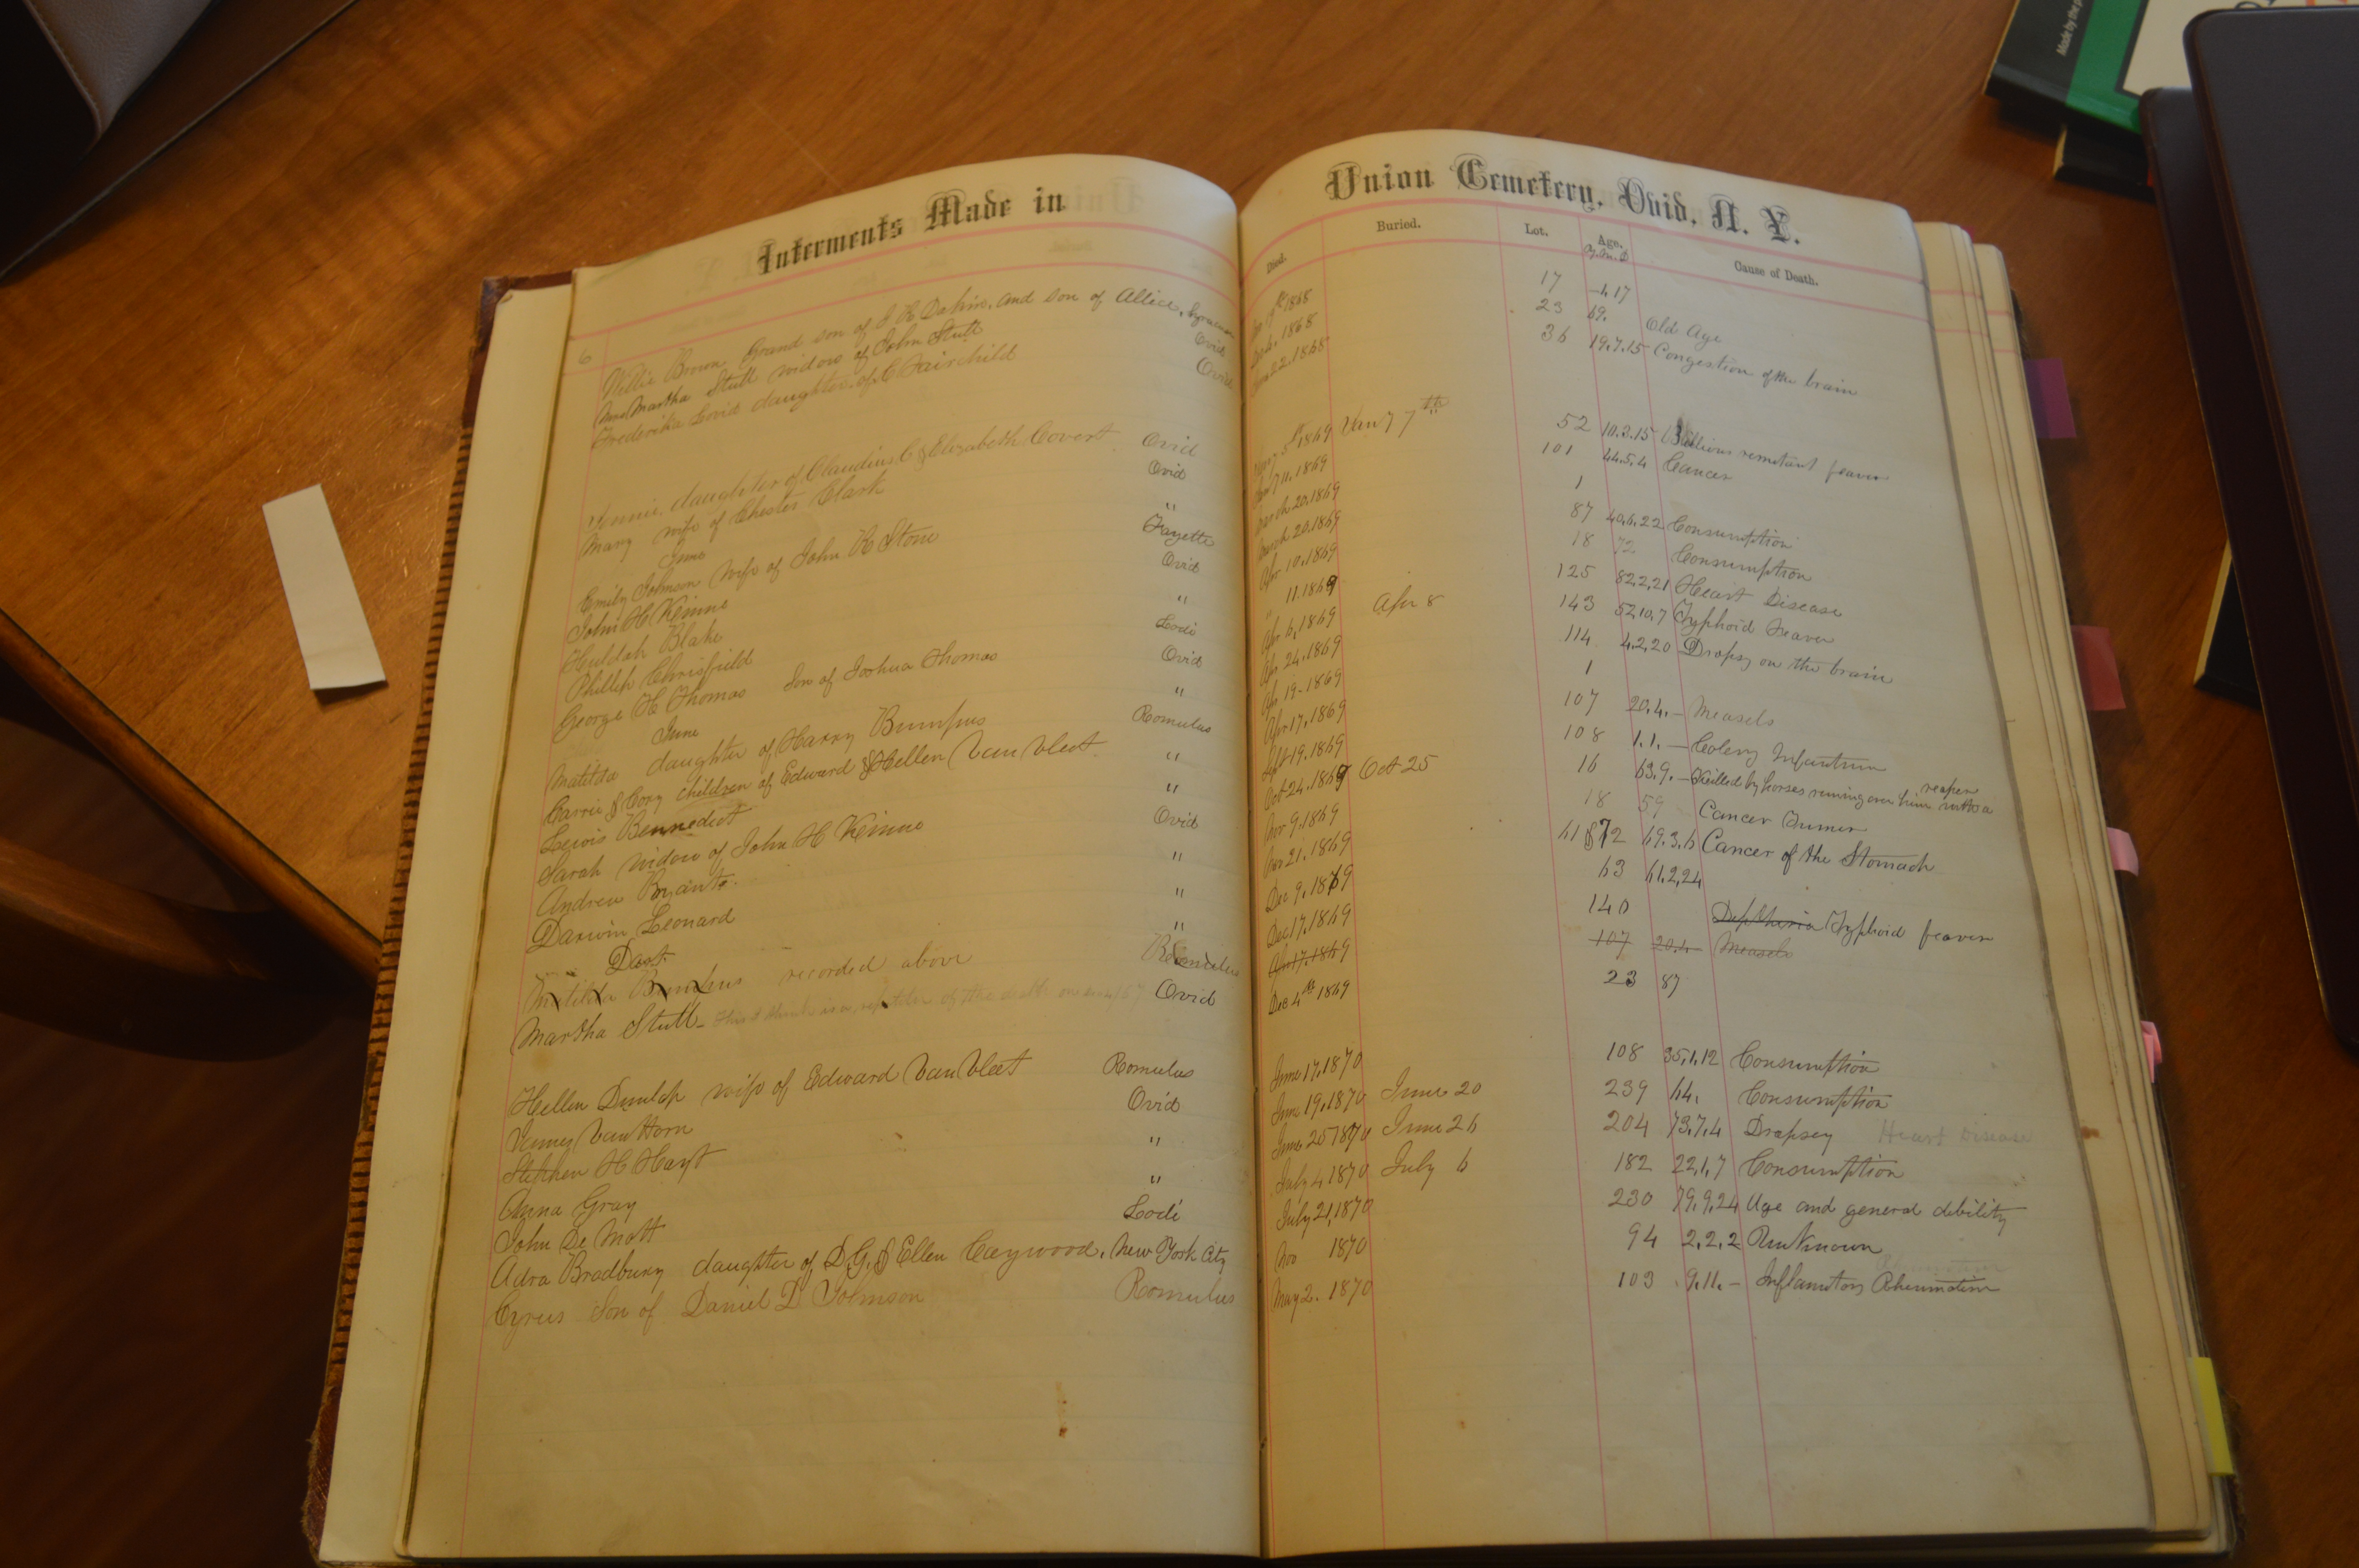 Made by the p
Interments Made in
6
Willie Brown Grand son of J R Dakin. and son of Allice.
Mrs Martha Stull widow of John Stull Ovid
Frederika Covid daughter of C Fairchild Ovid
Jennie, daughter of Claudius C & Elizabeth Covert Ovid
Mary wife of Chester Clark Ovid
June "
Emily Johnson wife of John R Stone Fayette
John H Kinne Ovid
Huldah Blake "
Phillip Chrisfield Lodi
George H Thomas Son of Joshua Thomas Ovid
June "
Matilda daughter of Harry Bumpus Romulus
Carrie & Cory children of Edward & Hellen Van Vleet "
Lewis Bennedict "
Sarah widow of John H Kinne Ovid
Andrew "
Darwin Leonard "
Dart "
Matilda Bumpus recorded above Romulus
Martha Stull - This I think is a of the death on Ovid
Hellen Dunlap wife of Edward Van Vleet Romulus
James Van Horn Ovid
Stephen H Hayt "
Anna Gray "
John De Mott Lodi
Adra Bradbury daughter of D. G. & Ellen Caywood. New York City
Cyrus Son of Daniel D Johnson Romulus
Union Cemetery, Ovid, N. Y.
Died. Buried. Lot. Age. Cause of Death.
Y. M. D
1868 17 -4.17
1868 23 69. Old Age
22.1868 36 19.7.15 Congestion of the brain
1869 Jan 7th 52 10.3.15 Billious remitant feaver
11.1869 101 44.5.4 Cancer
March 20.1869 1
March 20.1869 87 40.6.22 Consumption
Apr 10.1869 18 72 Consumption
" 11.1869 125 82.2.21 Heart Disease
Apr 6,1869 Apr 8 143 52,10,7 Typhoid Feaver
Apr 24.1869 114 4.2.20 Dropsy on the brain
Apr 19-1869 1
Apr 17.1869 107 20.4.- Measels
Sept 19.1869 108 1.1.- Colery Infantum
Oct 24.1869 Oct 25 16 63.9.- Killed by horses runing over him with a reaper
Nov 9.1869 18 59 Cancer Tumer
Nov 21.1869 61 & 72 69.3.6 Cancer of the Stomach
Dec 9.1869 63 61.2.24
Dec 17.1869 140 Diptheria Typhoid feaver
Apr 17.1869 107 20.4- Measels
Dec 4th 1869 23 87
June 17.1870 108 35,1,12 Consumption
June 19.1870 June 20 239 64. Consumption
June 25 1870 June 26 204 73.7.4 Dropsey Heart Disease
July 4 1870 July 6 182 22,1,7 Consumption
July 21,1870 230 79.9.24 Age and general debility
Nov 1870 94 2.2.2 Unknown
May 2. 1870 103 9.11.- Inflamitory Rheumatism